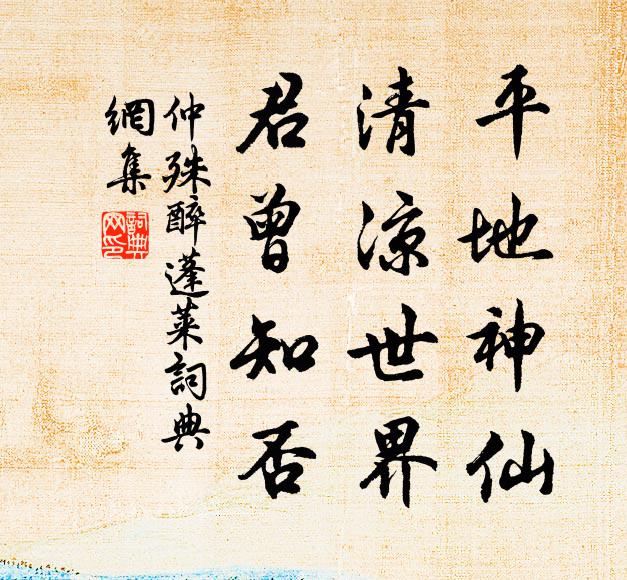 平地神仙
清凉世界
君曾知否
仲殊醉蓬莱詞典
網集
詞典網印